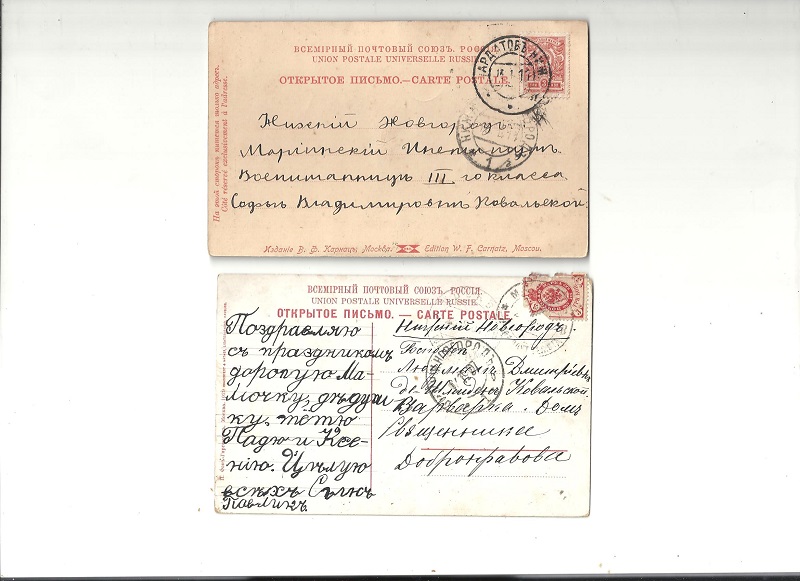 ВСЕМІРНЫЙ ПОЧТОВЫЙ СОЮЗЪ. РОССІЯ
UNION POSTALE UNIVERSELLE RUSSIE
ОТКРЫТОЕ ПИСЬМО.—CARTE POSTALE.
АРДАТОВЪ НИЖ
На этой сторонѣ пишется только адресъ.
Côté réservé exclusivement à l'adresse.
Нижній Новгородъ
Маріинскій Институтъ
Воспитанницѣ III го класса
Софьѣ Владимировнѣ Ковальской
Изданіе В. Ф. Карнацъ, Москва.
Edition W. F. Carnatz, Moscou.
ВСЕМІРНЫЙ ПОЧТОВЫЙ СОЮЗЪ. РОССІЯ.
UNION POSTALE UNIVERSELLE RUSSIE.
ОТКРЫТОЕ ПИСЬМО. — CARTE POSTALE.
Поздравляю
съ праздникомъ
дорогую Ма-
мочку, дѣдуш
ку, тётю
Надю и Ксе-
нію. Цѣлую
всѣхъ Сынъ
Павликъ
Нижній Новгородъ
Людмилѣ Дмитріевнѣ
Ковальской
Варварка. Домъ
Священника
Добронравова